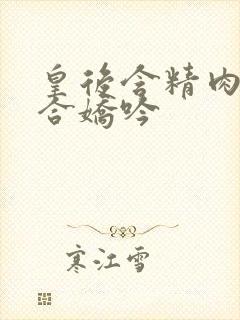 皇後含精肉
合嬌吟
寒江雪